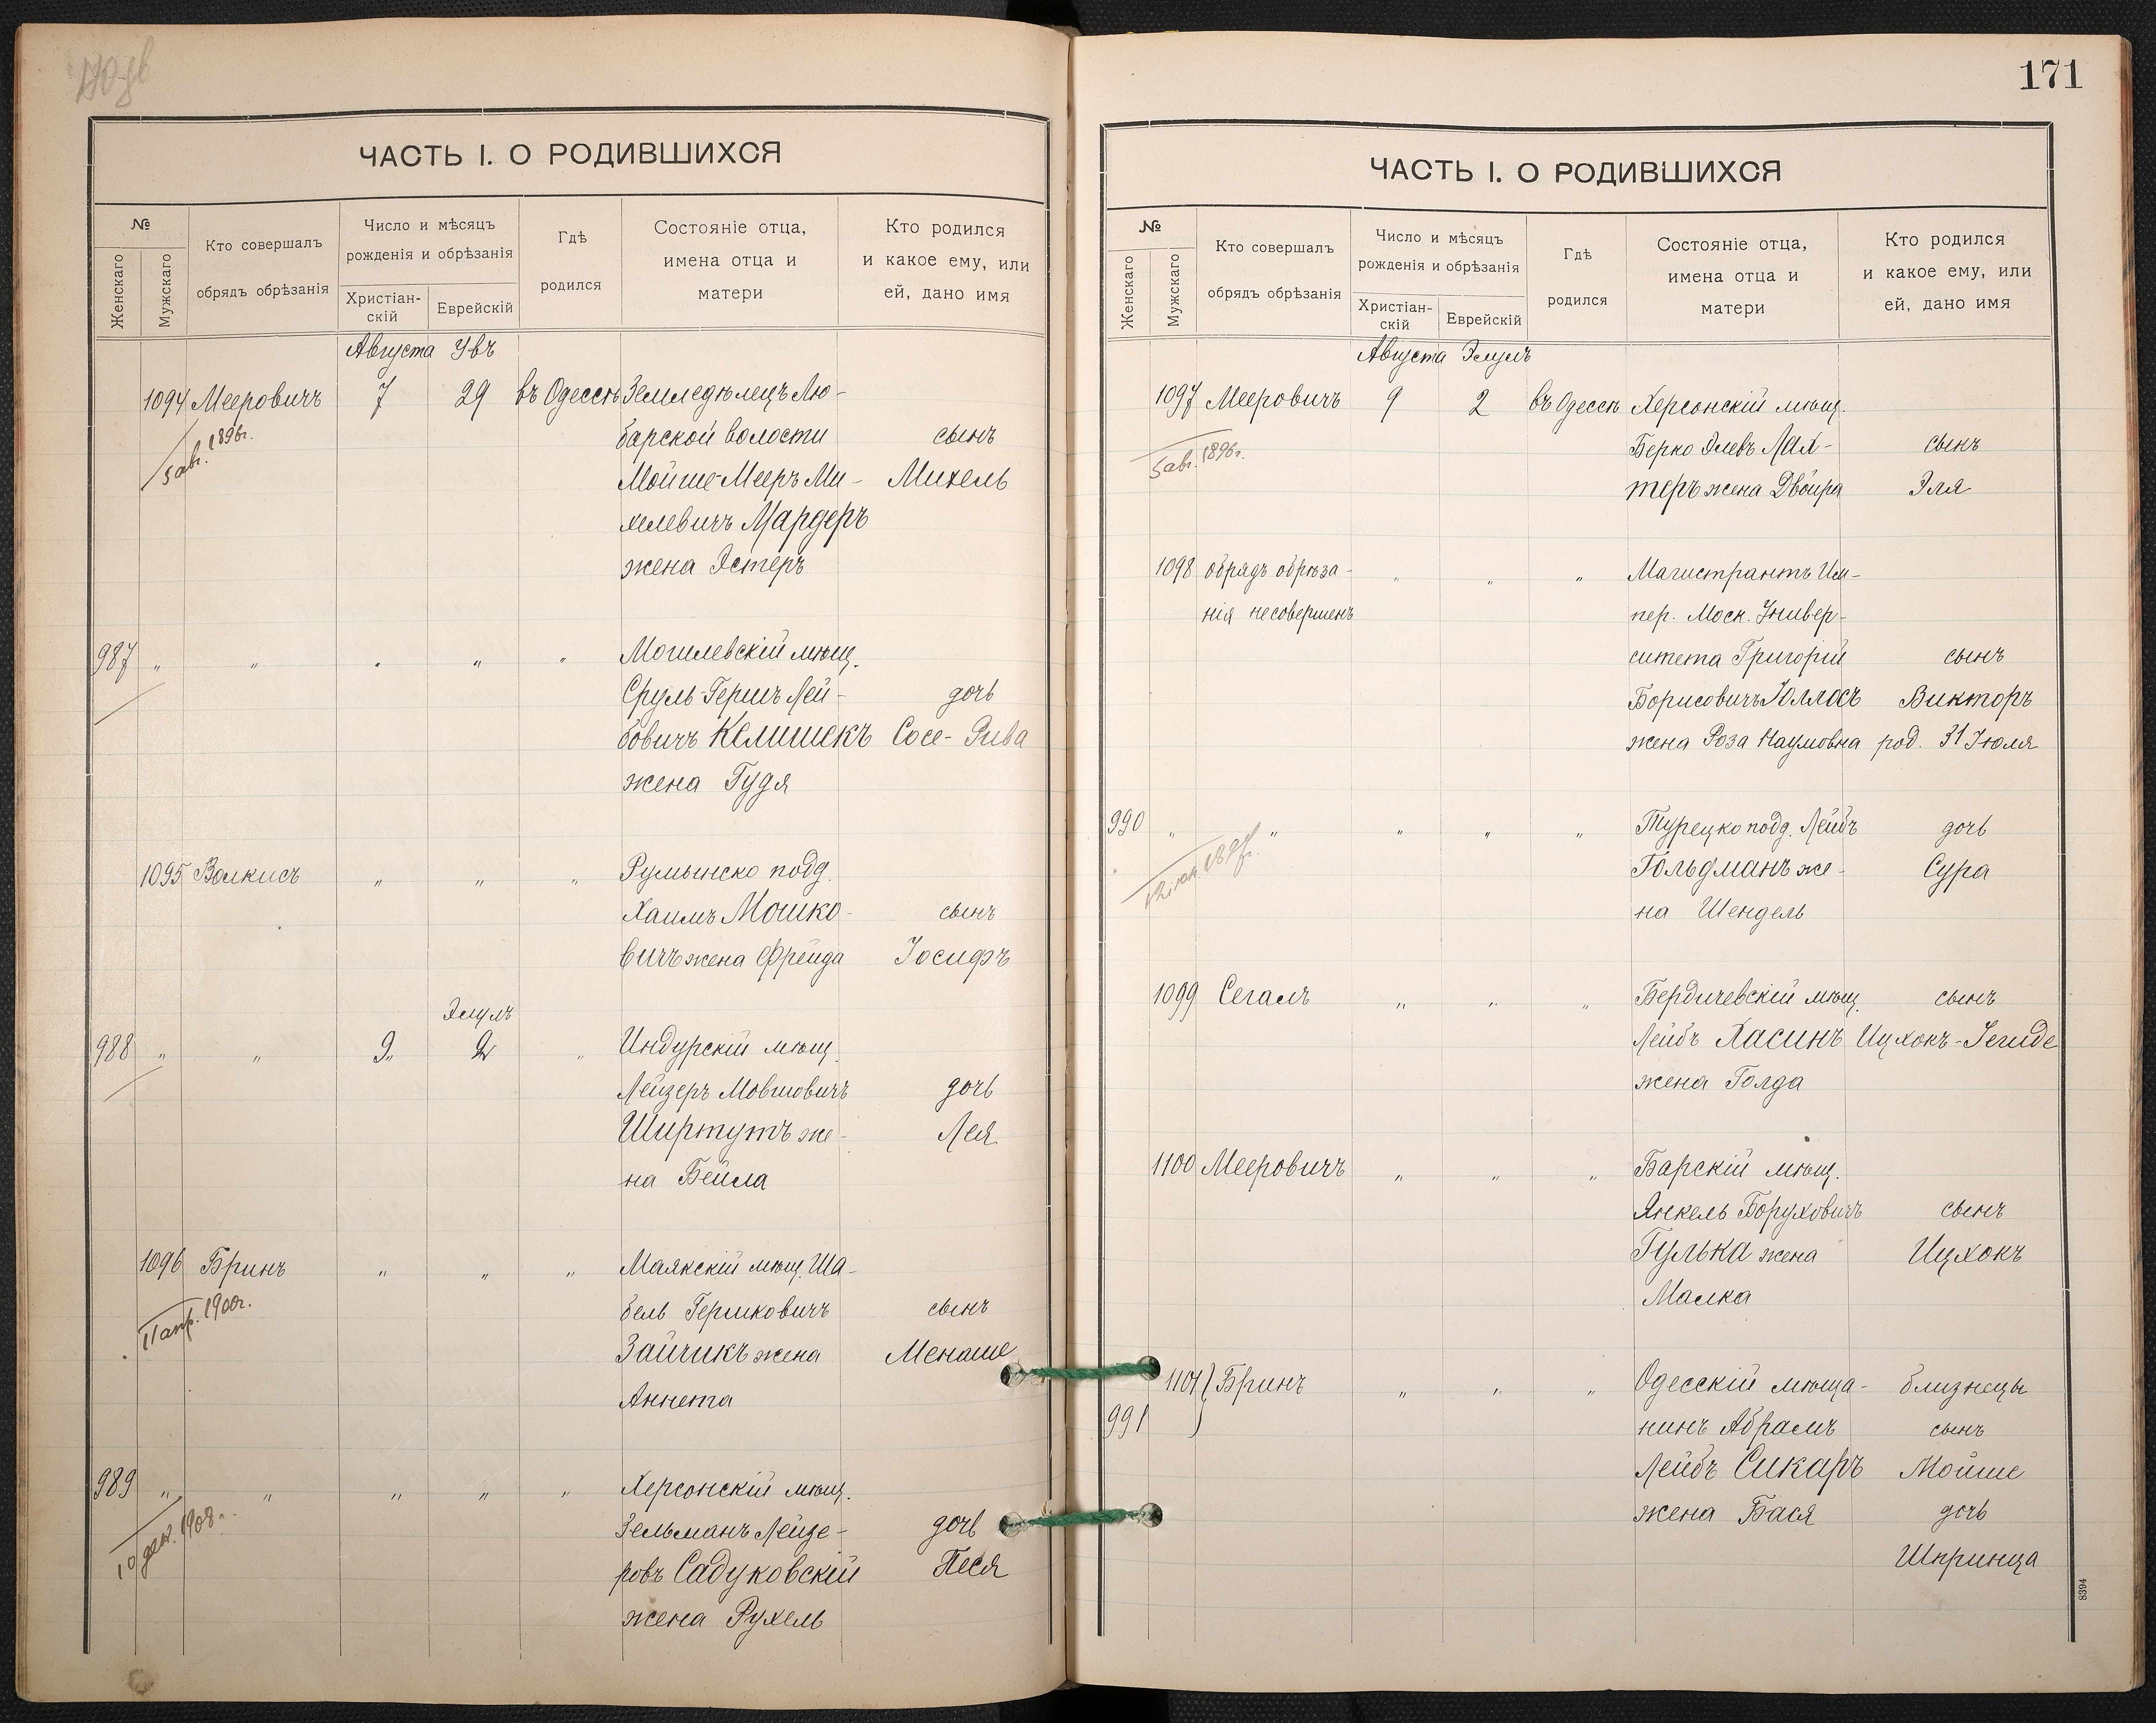 170 об
ЧАСТЬ I. О РОДИВШИХСЯ
№
Женскаго
Мужскаго
Кто совершалъ
обрядъ обрѣзанія
Число и мѣсяцъ
рожденія и обрѣзанія
Христіан-
скій
Еврейскій
Гдѣ
родился
Состояніе отца,
имена отца и
матери
Кто родился
и какое ему, или
ей, дано имя
Августа Увъ
1094 Мееровичъ 7 29 въ Одессѣ Земледѣлецъ Лю-
5 авг. 1896г.
барской волости сынъ
Мойше-Мееръ Ми- Михель
хелевичъ Мардеръ
жена Эстеръ
987 " " " " " Могилевскій мѣщ.
Сруль-Гершъ Лей- дочь
бовичъ Келишекъ Сосе-Рива
жена Гудя
1095 Волкисъ " " " Румынско подд.
Хаимъ Мошко- сынъ
вичъ жена Фрейда Іосифъ
Элулъ
988 " " 9 2 " Индурскій мѣщ.
Лейзеръ Мовшовичъ дочь
Ширтутъ же- Лея
на Бейла
1096 Бринъ " " " Маякскій мѣщ. Ша-
11 апр. 1900г.
бель Гершковичъ сынъ
Зайчикъ жена Менаше
Аннета
989 " " " " " Херсонскій мѣщ.
10 дек. 1908г.
Зельманъ Лейзе- дочь
ровъ Садуковскій Песя
жена Рухель
171
ЧАСТЬ I. О РОДИВШИХСЯ
№
Женскаго
Мужскаго
Кто совершалъ
обрядъ обрѣзанія
Число и мѣсяцъ
рожденія и обрѣзанія
Христіан-
скій
Еврейскій
Гдѣ
родился
Состояніе отца,
имена отца и
матери
Кто родился
и какое ему, или
ей, дано имя
Августа Элулъ
1097 Мееровичъ 9 2 въ Одессѣ Херсонскій мѣщ.
5 авг. 1896г.
Берко Элевъ Лах- сынъ
теръ жена Двойра Эля
1098 обрядъ обрѣза- " " " Магистрантъ Им-
нія не совершенъ пер. Моск. Универ-
ситета Григорій сынъ
Борисовичъ Іоллосъ Викторъ
жена Роза Наумовна род. 31 Іюля
990 " " " " " Турецко подд. Лейбъ дочь
Гольдманъ же- Сура
на Шендель
1099 Сегалъ " " " Бердичевскій мѣщ. сынъ
Лейбъ Хасинъ Ицхокъ-Іегиде
жена Голда
1100 Мееровичъ " " " Барскій мѣщ.
Янкель Боруховичъ сынъ
Гулька жена Ицхокъ
Малка
1101 Бринъ " " " Одесскій мѣща- близнецы
991 нинъ Абрамъ сынъ
Лейбъ Сикаръ Мойше
жена Бася дочь
Шпринца
8394